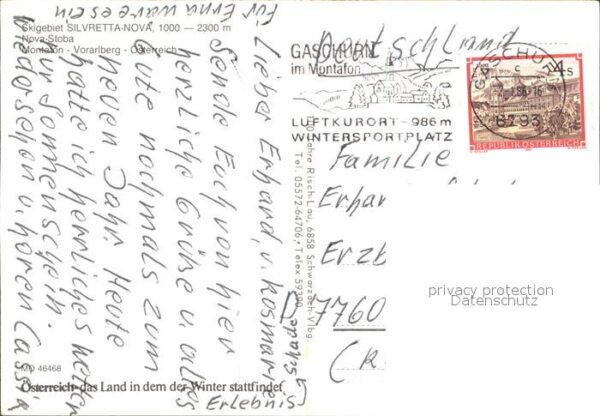 für Erna
Skigebiet SILVRETTA-NOVA, 1000 — 2300 m
Nova-Stoba
Montafon - Vorarlberg - Österreich
Lieber Erhard, u. Rosmarie
Sende Euch von hier
herzliche Grüße u. alles
Gute nochmals zum
neuen Jahr. Heute
hatte ich herrliches
Sonnenschein.
u. hören
(schade
Erlebnis
MD 46468
Österreich-das Land in dem der Winter stattfindet
Risch-Lau, 6858 Schwarzach-Vlbg.
Tel. 05572-64706, Telex 59300
GASCHURN
im Montafon
LUFTKURORT - 986 m
WINTERSPORTPLATZ
GASCHURN
6793
4 S
REPUBLIK ÖSTERREICH
Deutschland
Familie
Erhar
Erzb
D 7760
privacy protection
Datenschutz